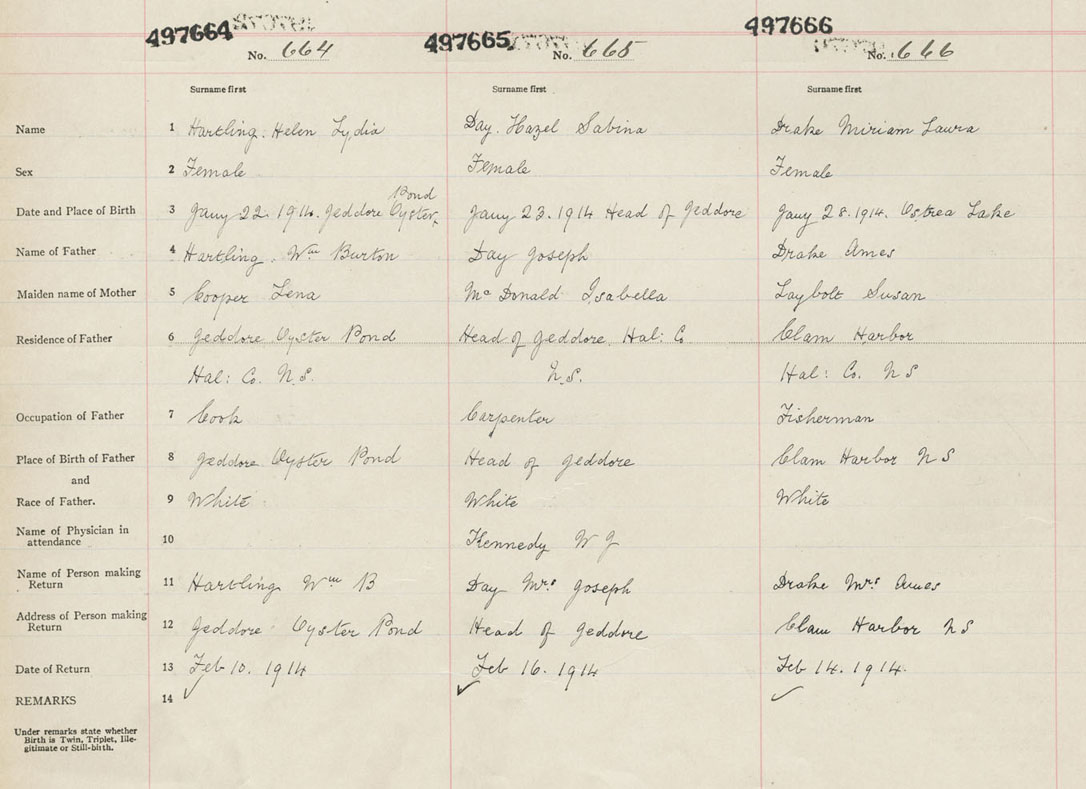 497664 497665 497666
No. 664 No. 665 No. 666
Surname first Surname first Surname first
Name 1 Hartling. Helen Lydia Day. Hazel Sabina Drake Miriam Laura
Sex 2 Female Female Female
Pond
Date and Place of Birth 3 Jany 22. 1914. Jeddore Oyster, Jany 23. 1914 Head of Jeddore Jany 28. 1914. Ostrea Lake
Name of Father 4 Hartling. Wm Burton Day Joseph Drake Ames
Maiden name of Mother 5 Cooper Lena Mc Donald Isabella Laybolt Susan
Residence of Father 6 Jeddore Oyster Pond Head of Jeddore. Hal: Co. Clam Harbor
Hal: Co. N.S. N.S. Hal: Co. N S
Occupation of Father 7 Cook Carpenter Fisherman
Place of Birth of Father 8 Jeddore Oyster Pond Head of Jeddore Clam Harbor N S
and
Race of Father. 9 White White White
Name of Physician in
attendance 10 Kennedy W J
Name of Person making
Return 11 Hartling Wm B Day Mrs Joseph Drake Mrs Ames
Address of Person making
Return 12 Jeddore Oyster Pond Head of Jeddore Clam Harbor N S
Date of Return 13 Feb 10. 1914 Feb 16. 1914 Feb 14. 1914.
REMARKS 14
Under remarks state whether
Birth is Twin, Triplet, Ille-
gitimate or Still-birth.